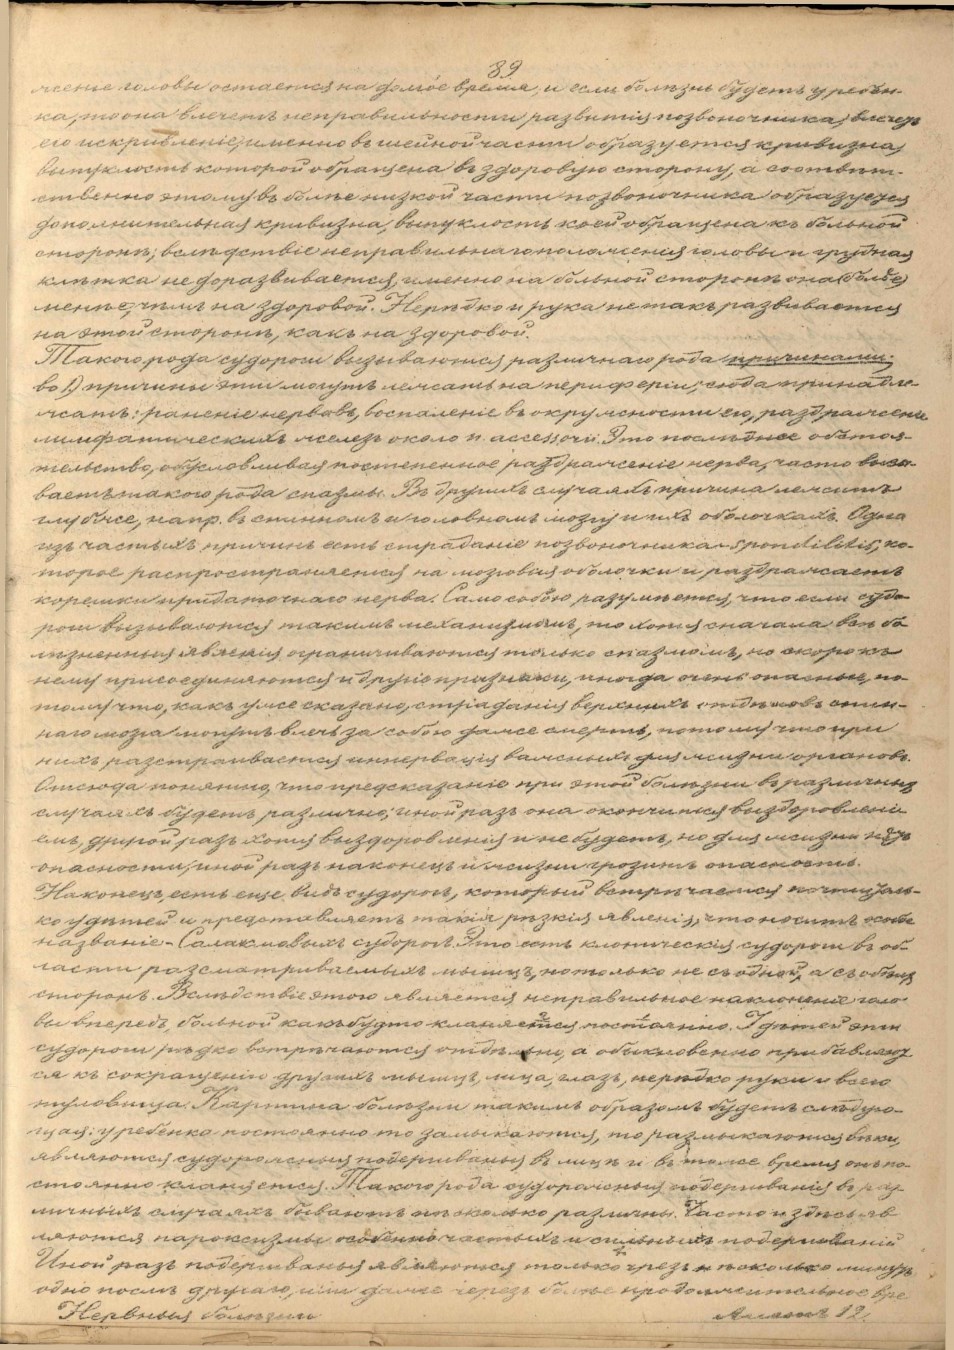 89
жсеніе головы остается на долгое время, и если болѣзнь будетъ у ребен-
ка, то она влечетъ неправильности развитія позвоночника, влечетъ
его искривленіе; именно въ шейной части образуется кривизна,
выпуклость которой обращена въ здоровую сторону, а соотвѣт-
ственно этому въ болѣе низкой части позвоночника образуется
дополнительная кривизна, выпуклость коей обращена къ больной
сторонѣ; вслѣдствіе неправильнаго положенія головы и грудная
клѣтка недоразвивается, именно на больной сторонѣ она (болѣе)
менѣе, чѣмъ на здоровой. Нерѣдко и рука не такъ развивается
на этой сторонѣ, какъ на здоровой.
Такого рода судороги вызываются различнаго рода причинами:
во 1) причины эти могутъ лежать на периферіи; сюда принадле-
жатъ: раненіе нервовъ, воспаленіе въ окружности его, раздраженіе
лимфатическихъ железъ около n. accessorii. Это послѣднее обстоя-
тельство, обусловливая постепенное раздраженіе нерва, часто вызы-
ваетъ такого рода спазмы. Въ другихъ случаяхъ причина лежитъ
глубже, напр. въ спинномъ и головномъ мозгу и ихъ оболочкахъ. Одна
изъ частыхъ причинъ есть страданіе позвоночника - spondilitis, ко-
торое распространяется на мозговыя оболочки и раздражаетъ
корешки придаточнаго нерва. Само собою разумѣется, что если судо-
роги вызываются такимъ механизмомъ, то хотя сначала всѣ бо-
лѣзненныя явленія ограничиваются только спазмомъ, но скоро къ
нему присоединяются и другіе признаки, иногда очень опасные, по-
тому что, какъ уже сказано, страданія верхнихъ отдѣловъ спин-
наго мозга могутъ влечь за собою даже смерть, потому что при
нихъ разстраивается иннервація важныхъ для жизни органовъ.
Отсюда понятно, что предсказаніе при этой болѣзни въ различныхъ
случаяхъ будетъ различно; иной разъ она окончится выздоровлені-
емъ, другой разъ хотя выздоровленія и не будетъ, но для жизни нѣтъ
опасности; иной разъ наконецъ и жизни грозитъ опасность.
Наконецъ, есть еще видъ судорогъ, который встрѣчается почти толь-
ко у дѣтей и представляетъ такія рѣзкія явленія, что носитъ особое
названіе - Салаамовыхъ судорогъ. Это есть клоническія судороги въ об-
ласти разсматриваемыхъ мышцъ, но только не съ одной, а съ обѣихъ
сторонъ. Вслѣдствіе этого является неправильное наклоненіе голо-
вы впередъ, больной какъ будто кланяется постоянно. У дѣтей эти
судороги рѣдко встрѣчаются отдѣльно, а обыкновенно прибавляют-
ся къ сокращенію другихъ мышцъ, лица, глазъ, нерѣдко руки и всего
туловища. Картина болѣзни такимъ образомъ будетъ слѣдую-
щая: у ребенка постоянно то замыкаются, то размыкаются вѣки,
являются судорожныя подергиванья въ лицѣ и въ тоже время онъ по-
стоянно кланяется. Такого рода судорожныя подергиванія въ раз-
личныхъ случаяхъ бываютъ нѣсколько различны. Часто и здѣсь яв-
ляются пароксизмы особенно частыхъ и сильныхъ подергиваній
Иной разъ подергиванья являются только чрезъ нѣсколько минутъ
одно послѣ другаго, или даже черезъ болѣе продолжительное вре
Нервныя болѣзни
Листъ 12.